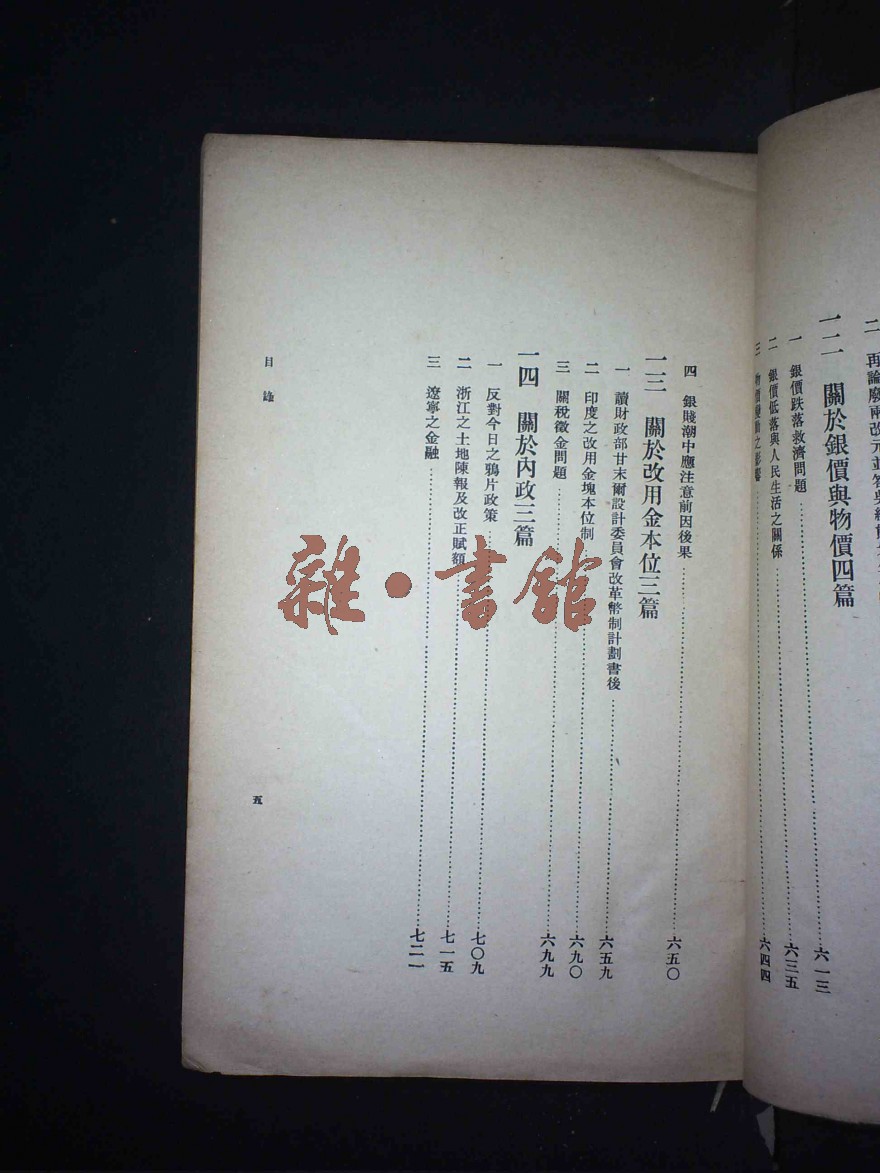 二 再論廢兩改元並答
一二 關於銀價與物價四篇
一 銀價跌落救濟問題……六一三
二 銀價低落與人民生活之關係……六三五
三 物價變動之影響……六四四
四 銀賤潮中應注意前因後果……六五〇
一三 關於改用金本位三篇
一 讀財政部甘末爾設計委員會改革幣制計劃書後……六五九
二 印度之改用金塊本位制……六九〇
三 關稅徵金問題……六九九
一四 關於內政三篇
一 反對今日之鴉片政策……七〇九
二 浙江之土地陳報及改正賦額……七一五
三 遼寧之金融……七二一
目錄
五
雜·書館